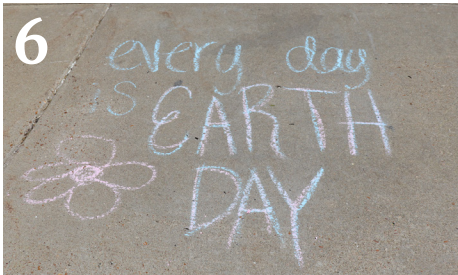 6
every day
is EARTH
DAY